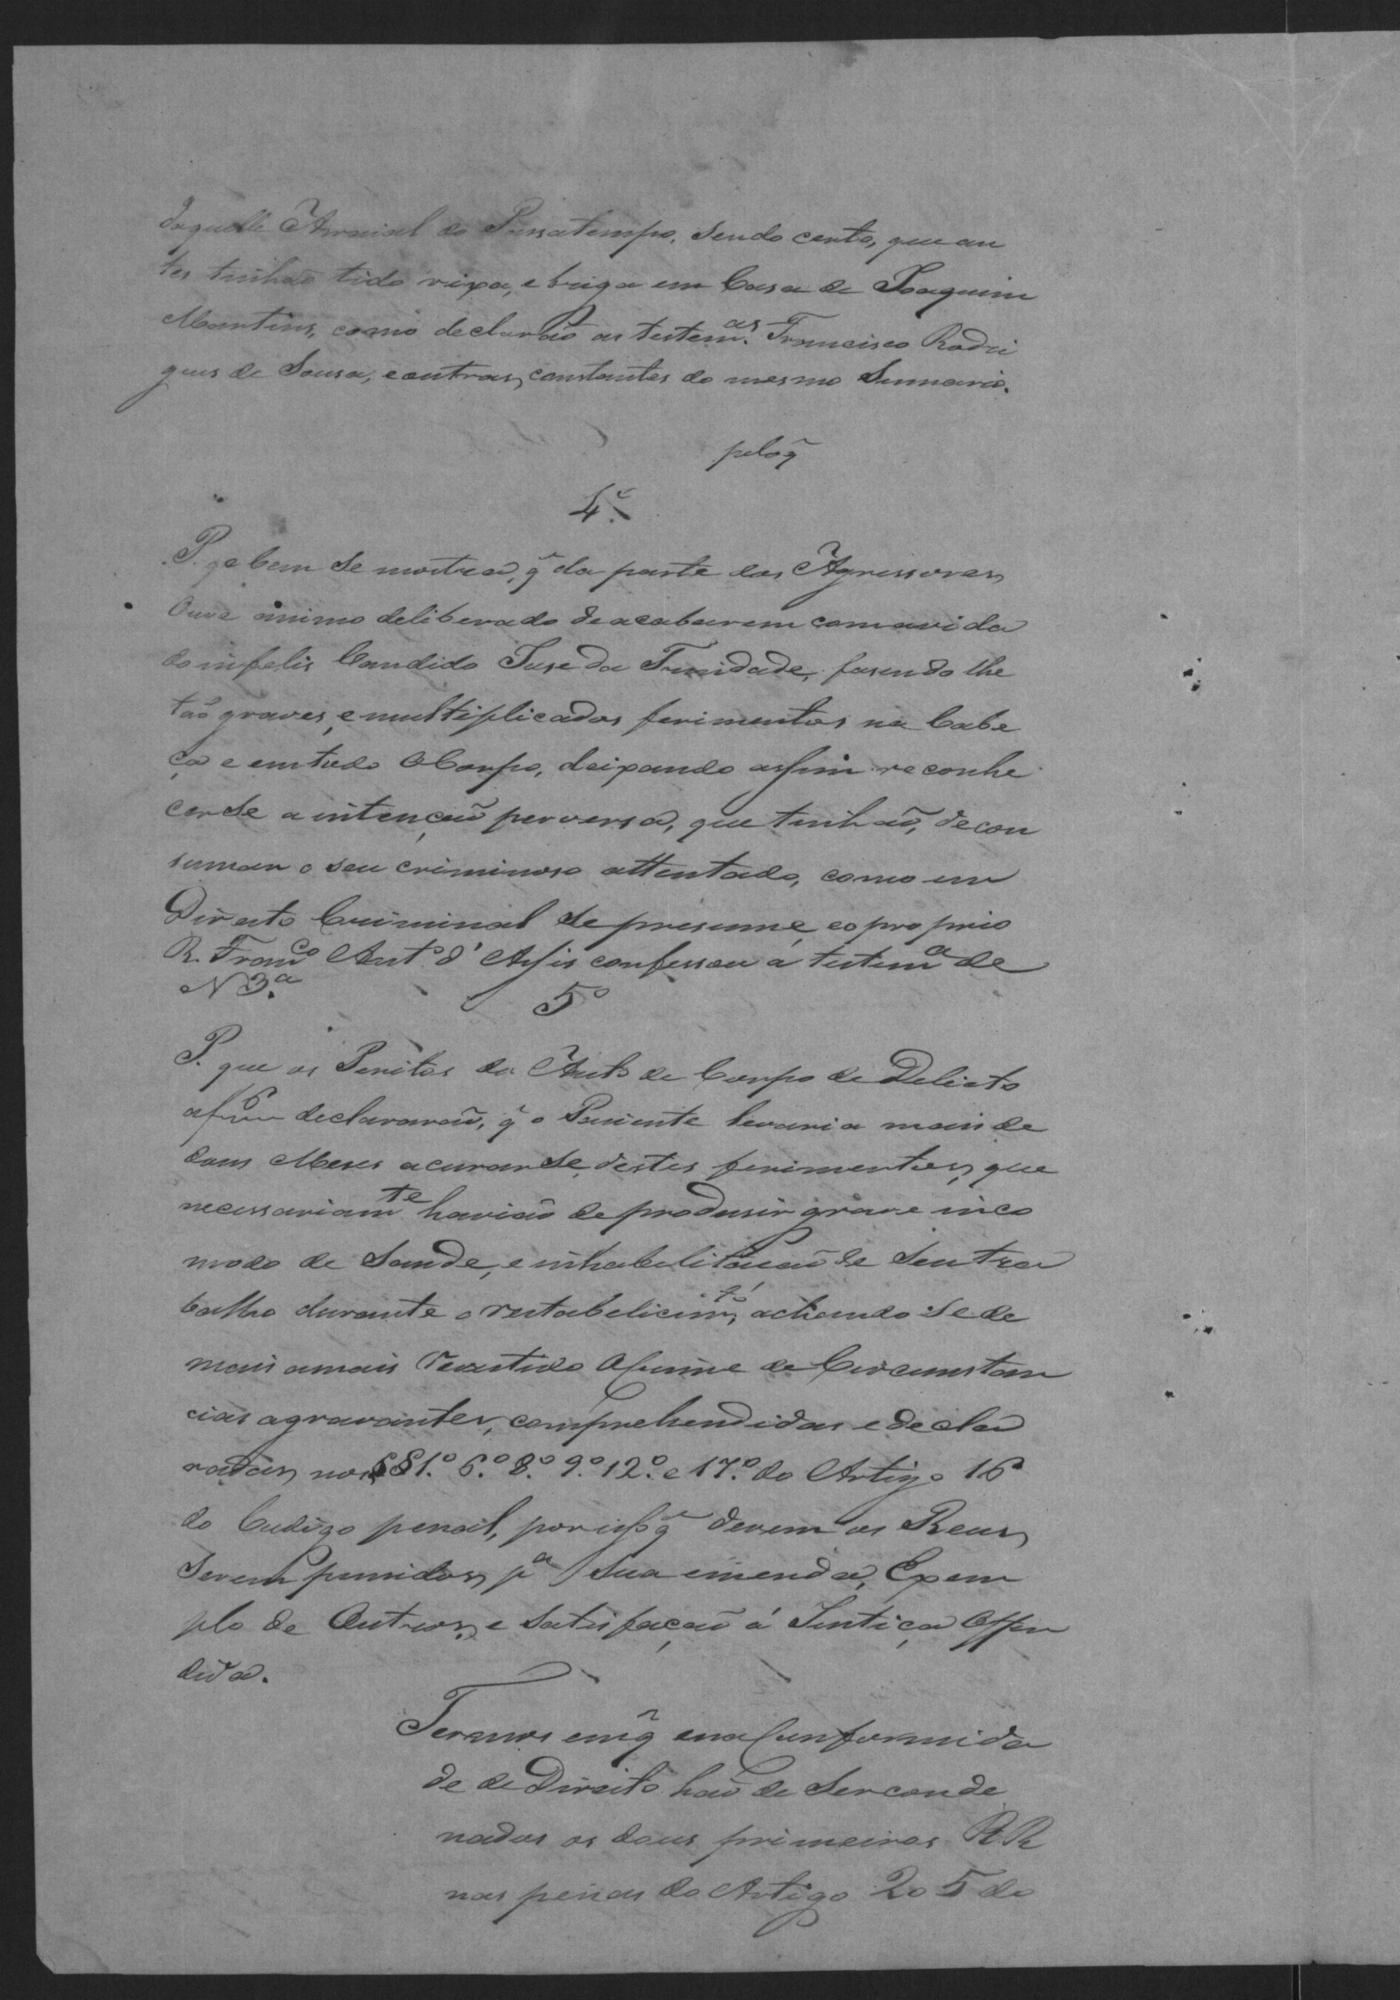 daquelle Arraial do Passatempo, sendo certo, que an
tes tinhão tido rixa, e briga em Casa de Joaquim
Martins, como declarão as testem.as Francisco Rodri
gues de Sousa, e outras, constantes do mesmo Summario.
pelo q̃
4.º
P. q e bem se mostra, q̃ da parte dos Agressores
Ouve animo deliberado de acabarem com a vida
do infelis Candido Jose da Trindade, fasendo lhe
tão graves, e multiplicados ferimentos na Cabe
ça e em todo o Corpo, deixando assim reconhe
cerse a intenção perversa, que tinhão, de con
sumar o seu criminoso attentado, como em
Direito Criminal se presume, e o proprio
R. Franc.co Ant.o d'Assis confessou á testem.a de
N 3.ª
5º
P. que os Peritos do Auto de Corpo de Delicto
a f 6 declararão, q̃ o Paciente levaria mais de
dous Meses a curarse destes ferimentos, que
necessariam.te havião de produsir grave inco
modo de Saude, e inhabilitação de seu tra
balho durante o restabelicim.to, achando se de
mais a mais revestido o Crime de Circumstan
cias agravantes, comprehendidas e decla
radas nos §§ 1.º 6.º 8.º 9.º 12.º e 17.º do Artigo 16
do Codigo penal, por isso q̃ devem os Reus
Serem punidos p.a sua emenda, Exem
plo de Outros, e Satisfação á Justiça Offen
dida.
Termos em q̃ e na Conformida
de de Direito hão de Ser conde
nados os dous primeiros RR
nas penas do Artigo 205 do